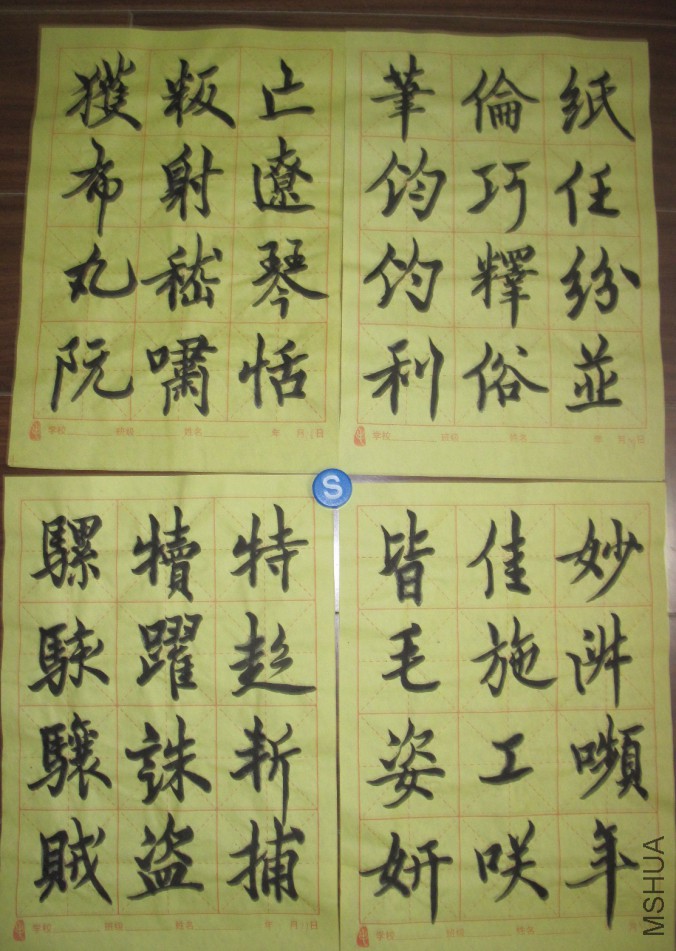 獲叛亡
布射遼
丸嵇琴
阮嘯恬
学校 班级 姓名 年 月 日
筆倫紙
鈞巧任
釣釋紛
利俗並
学校 班级 姓名 年 月 日
S
騾犢特
駭躍超
驤誅斬
賊盜捕
学校 班级 姓名 年 月 日
皆佳妙
毛施淑
姿工嚬
妍咲年
学校 班级 姓名
MSHUA